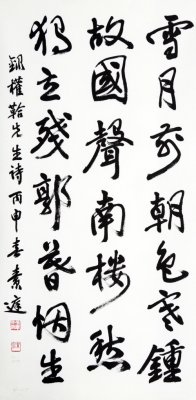 雪月前朝色寒鍾
故國聲南樓愁
獨立殘郭暮烟生
錄權韐先生诗丙申春素